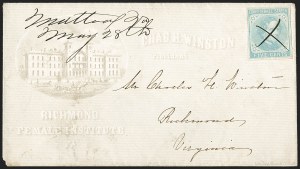 Mattoax Va
May 28th
CHAS. H. WINSTON
RICHMOND
FEMALE INSTITUTE
FIVE CENTS
Mr Charles H Winston
Richmond
Virginia